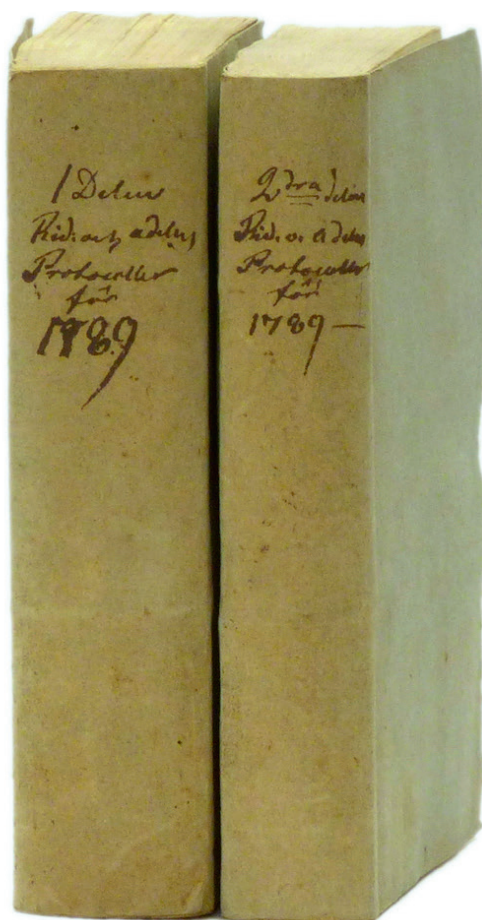 1 Delen
Rid. och adelns
Protocoller
för
1789
2dra delen
Rid. o. Adelns
Protocoller
för
1789 —